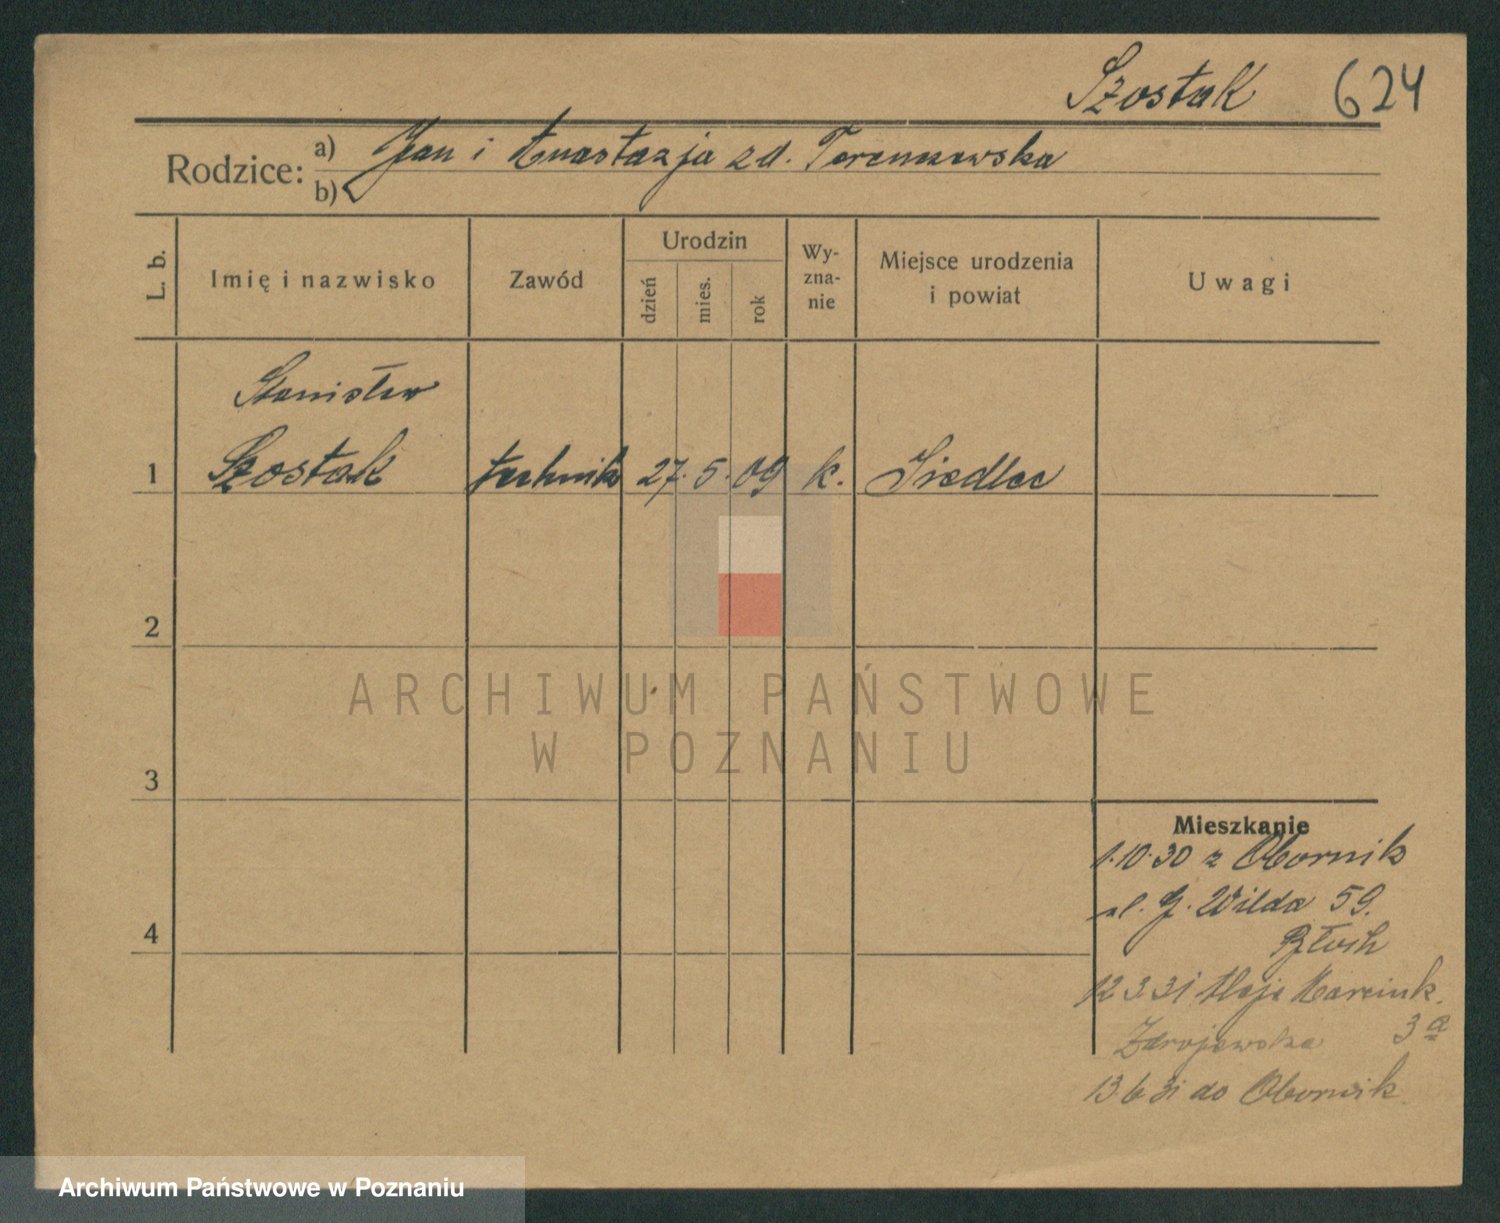 Szostak 624
Rodzice: a) Jan i Anastazja z d.
b)
L. b.
Imię i nazwisko
Zawód
Urodzin
dzień
mies.
rok
Wy-
zna-
nie
Miejsce urodzenia
i powiat
Uwagi
Stanisław
1 Szostak technik 27. 5. 09 k. Siedlec
2
3
4
Mieszkanie
1.10.30 z Obornik
ul. G. Wilda 59.
12 3 31 Aleje Marcink.
Zdrojewska 3a
13 6 31 do Obornik.
ARCHIWUM PAŃSTWOWE
W POZNANIU
Archiwum Państwowe w Poznaniu